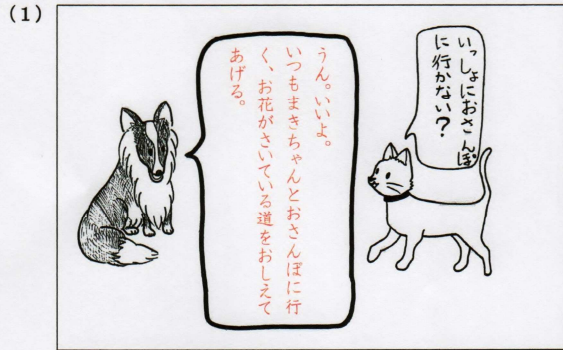 (1)
いっしょにおさんぽ
に行かない?
うん。いいよ。
いつもまきちゃんとおさんぽに行
く、お花がさいている道をおしえて
あげる。